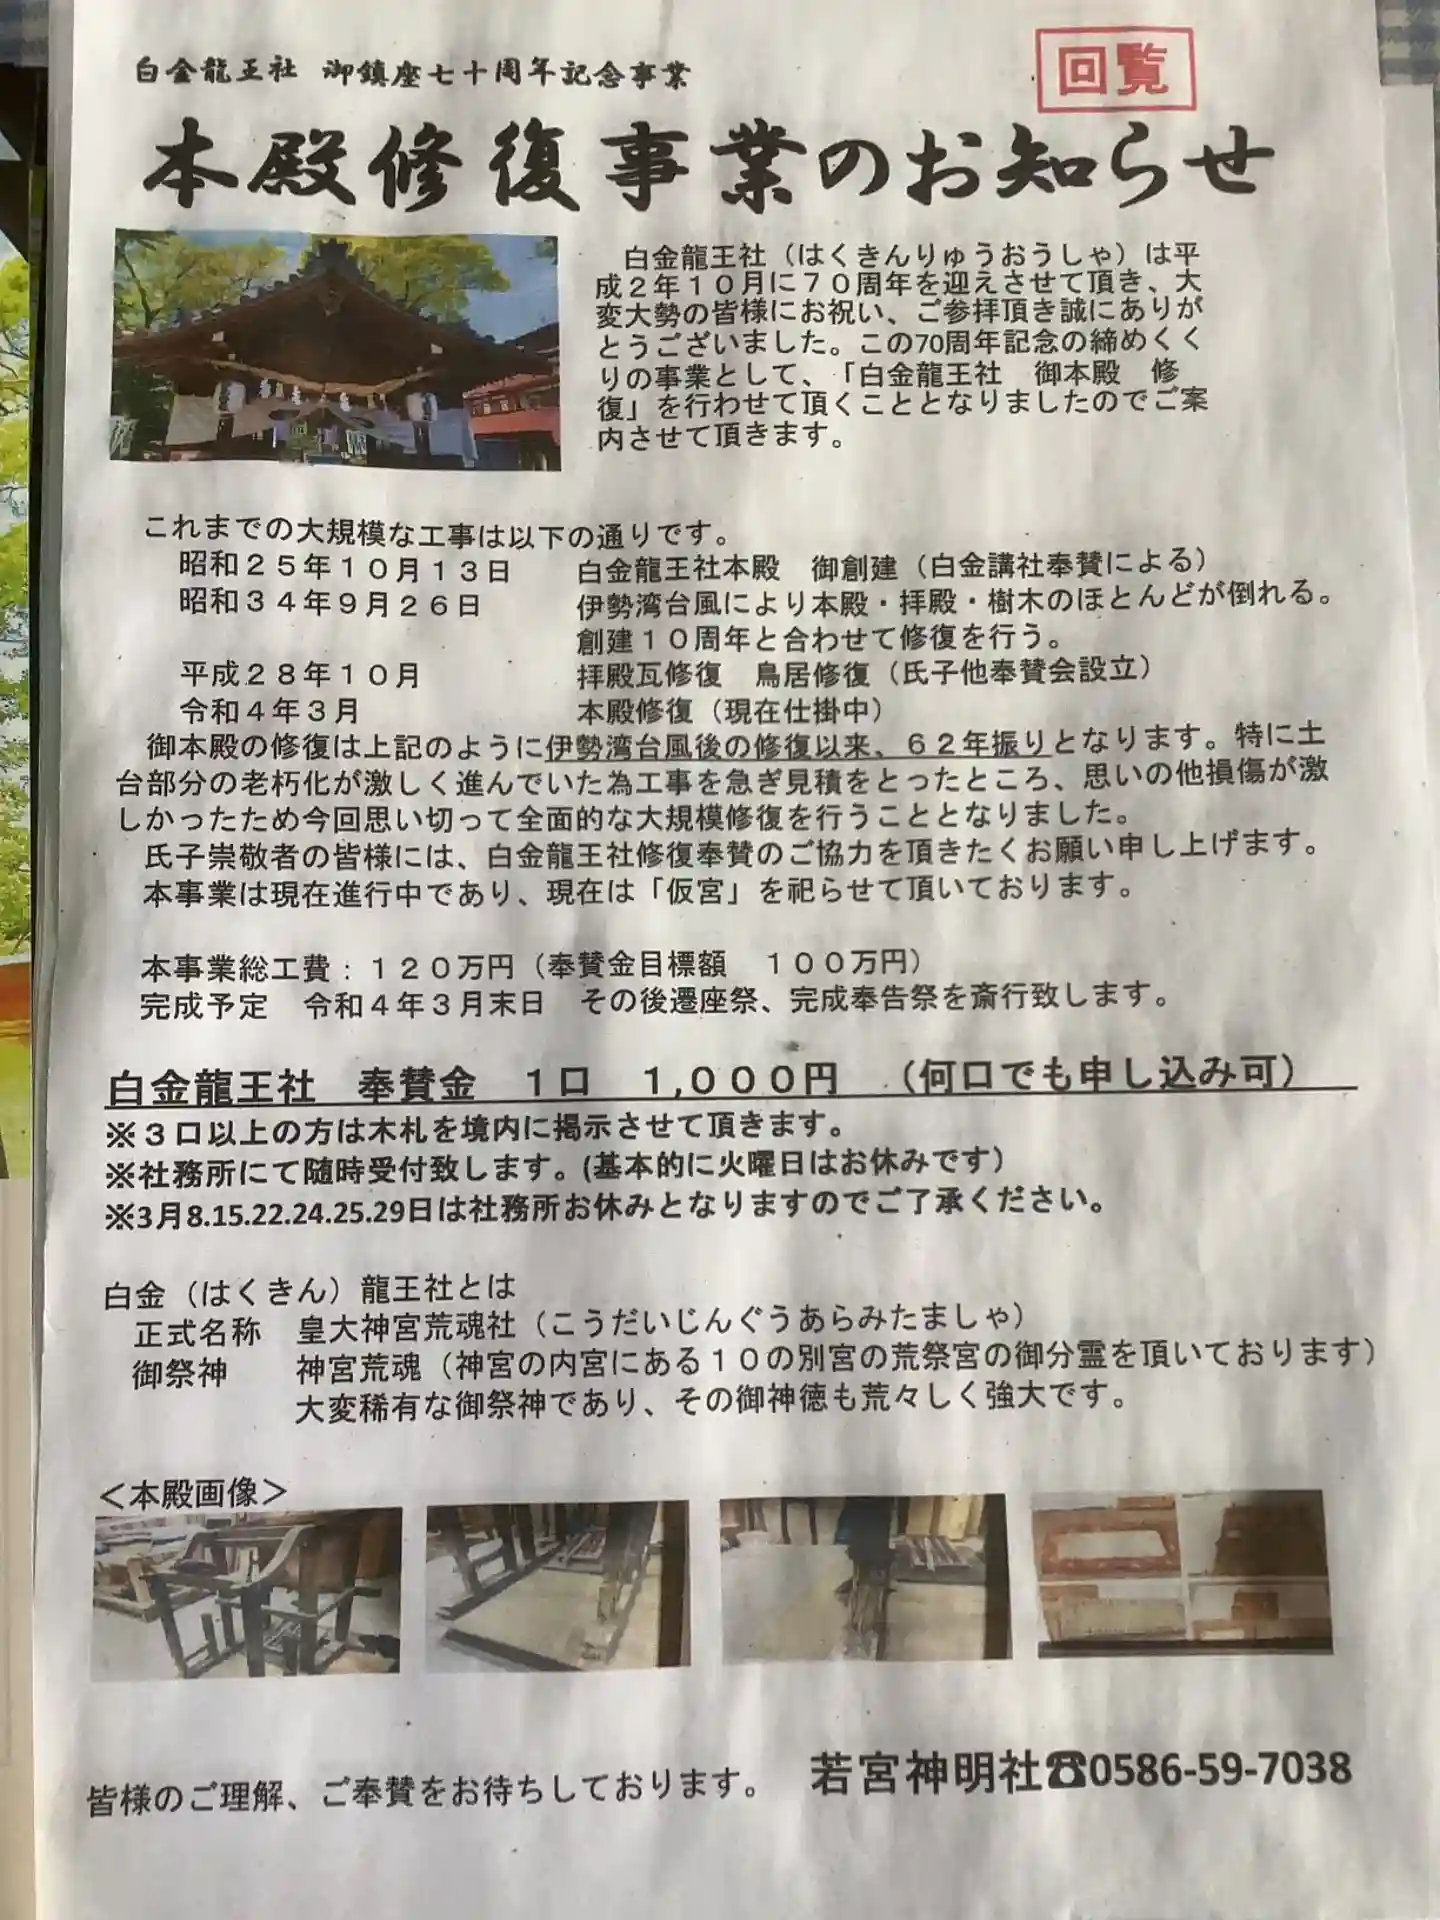 回覧
白金龍王社 御鎮座七十周年記念事業
本殿修復事業のお知らせ
白金龍王社（はくきんりゅうおうしゃ）は平
成２年１０月に７０周年を迎えさせて頂き、大
変大勢の皆様にお祝い、ご参拝頂き誠にありが
とうございました。この70周年記念の締めくく
りの事業として、「白金龍王社　御本殿　修
復」を行わせて頂くこととなりましたのでご案
内させて頂きます。
これまでの大規模な工事は以下の通りです。
昭和２５年１０月１３日　白金龍王社本殿　御創建（白金講社奉賛による）
昭和３４年９月２６日　伊勢湾台風により本殿・拝殿・樹木のほとんどが倒れる。
創建１０周年と合わせて修復を行う。
平成２８年１０月　拝殿瓦修復　鳥居修復（氏子他奉賛会設立）
令和４年３月　本殿修復（現在仕掛中）
御本殿の修復は上記のように伊勢湾台風後の修復以来、６２年振りとなります。特に土
台部分の老朽化が激しく進んでいた為工事を急ぎ見積をとったところ、思いの他損傷が激
しかったため今回思い切って全面的な大規模修復を行うこととなりました。
氏子崇敬者の皆様には、白金龍王社修復奉賛のご協力を頂きたくお願い申し上げます。
本事業は現在進行中であり、現在は「仮宮」を祀らせて頂いております。
本事業総工費：１２０万円（奉賛金目標額　１００万円）
完成予定　令和４年３月末日　その後遷座祭、完成奉告祭を斎行致します。
白金龍王社　奉賛金　１口　１,０００円　（何口でも申し込み可）
※３口以上の方は木札を境内に掲示させて頂きます。
※社務所にて随時受付致します。(基本的に火曜日はお休みです）
※3月8.15.22.24.25.29日は社務所お休みとなりますのでご了承ください。
白金（はくきん）龍王社とは
正式名称　皇大神宮荒魂社（こうだいじんぐうあらみたましゃ）
御祭神　神宮荒魂（神宮の内宮にある１０の別宮の荒祭宮の御分霊を頂いております）
大変稀有な御祭神であり、その御神徳も荒々しく強大です。
＜本殿画像＞
皆様のご理解、ご奉賛をお待ちしております。　若宮神明社☎0586-59-7038